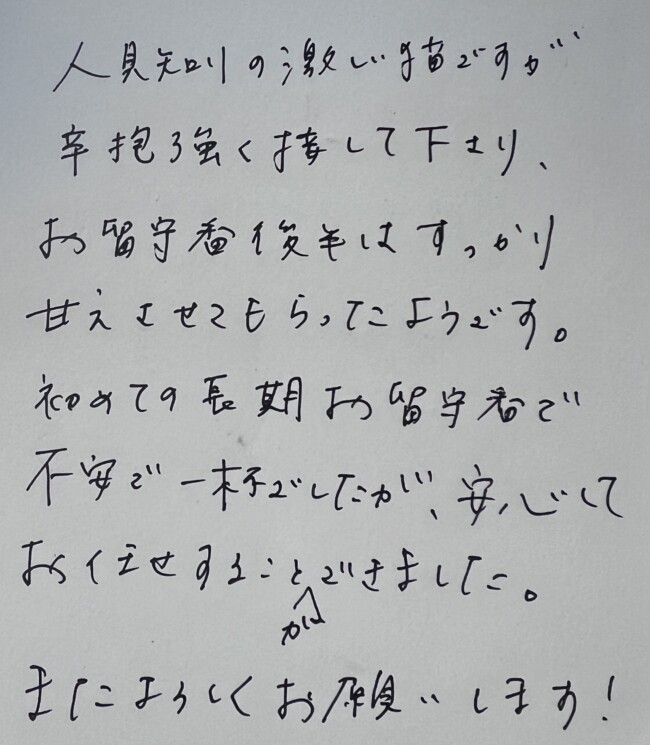 人見知りの激しい猫ですが
辛抱強く接して下さり、
お留守番後半はすっかり
甘えさせてもらってたようです。
初めての長期お留守番で
不安で一杯でしたが、安心して
お任せすることができました。
またよろしくお願いします！